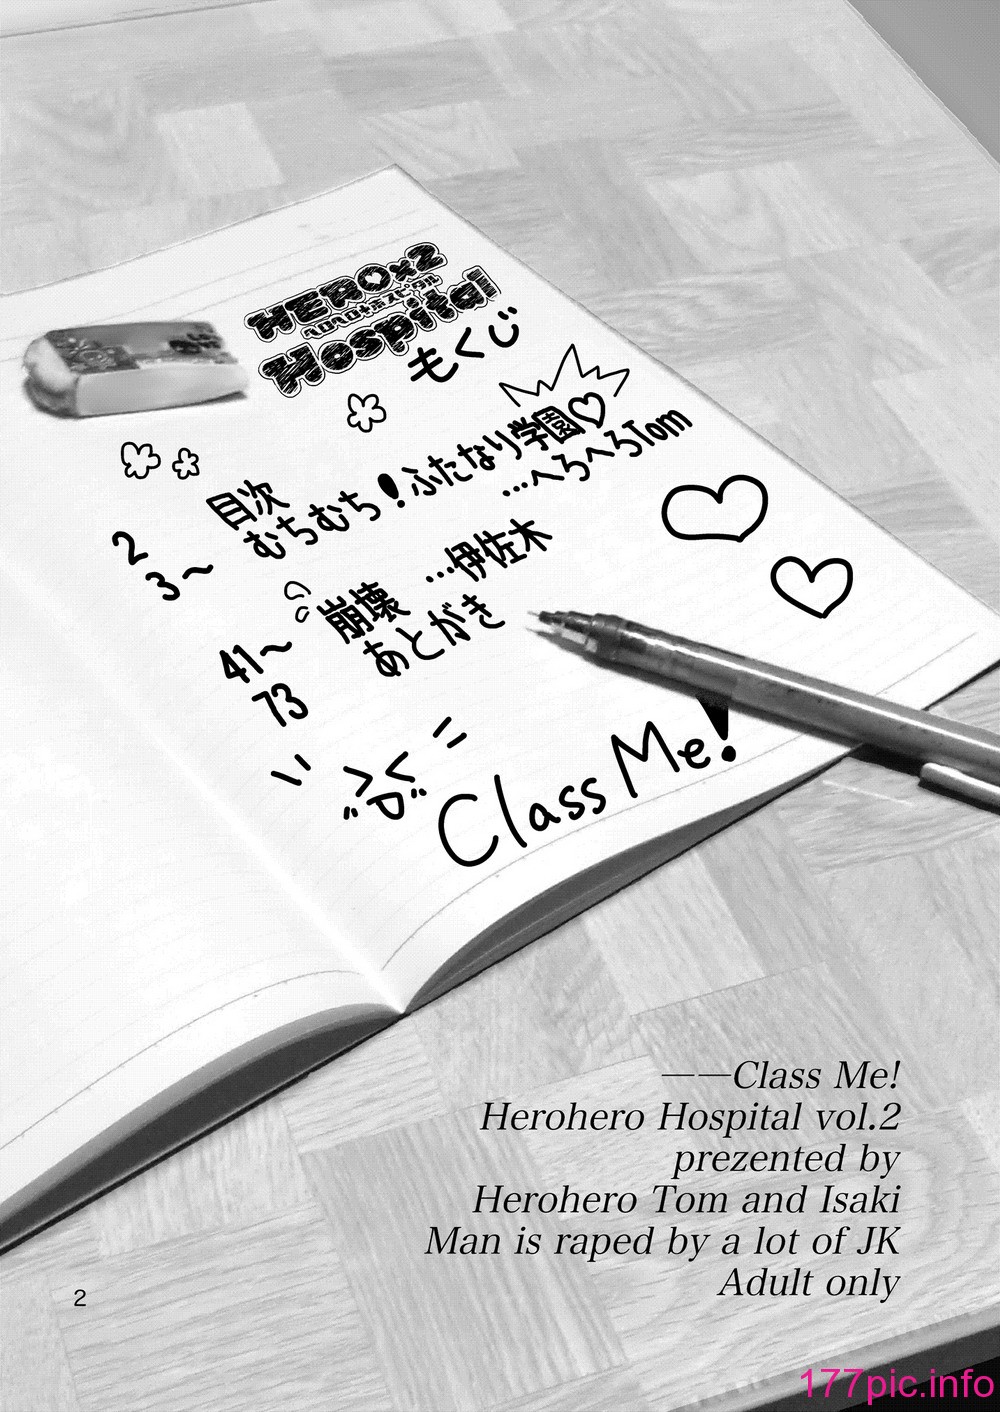 HERO×2
ヘロヘロホスピタル
Hospital
もくじ
2 目次
3～ むちむち!ふたなり学園♡
…へろへろTom
41～ 崩壊 …伊佐木
73 あとがき
Class Me!
――Class Me!
Herohero Hospital vol.2
prezented by
Herohero Tom and Isaki
Man is raped by a lot of JK
Adult only
2
177pic.info